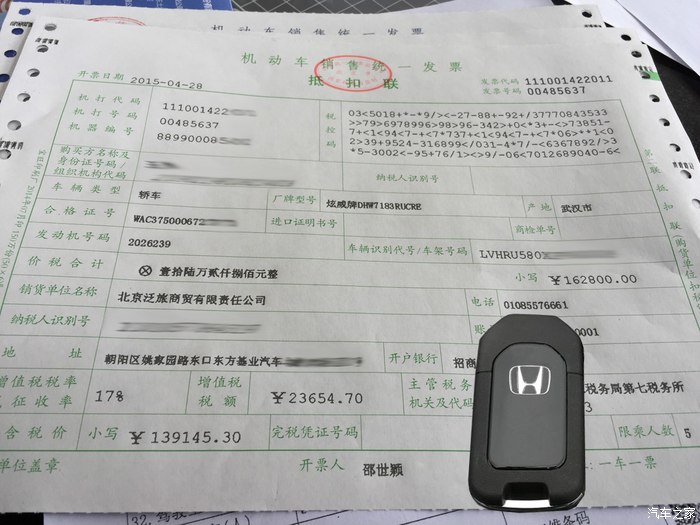 机动车销售统一发票
机动车销售统一发票
抵扣联
开票日期 2015-04-28
发票代码 111001422011
发票号码 00485637
机打代码 111001422
机打号码 00485637
机器编号 88990008
税控码
03<5018+*-*9/><-27-88+-92+/37770843533
>>79>6978996>98>96-342>+0<*3+-<>73851-
7+<1<94<7-+<7*737+<1<94<7-+<7*06>**1<0
2>39+9524-316899</031-4*7/-<6367892/>3
*5-3002<-95+76/1><>9/-06<7012689040-6<
购买方名称及
身份证号码/
组织机构代码
纳税人识别号
车辆类型 轿车 厂牌型号 炫威牌DHW7183RUCRE 产地 武汉市
合格证号 WAC37500067 进口证明书号 商检单号
发动机号码 2026239 车辆识别代号/车架号码 LVHRU580
价税合计 ⊗壹拾陆万贰仟捌佰元整 小写 ¥162800.00
销货单位名称 北京泛旅商贸有限责任公司 电话 01085576661
纳税人识别号 账 0001
地址 朝阳区姚家园路东口东方基业汽车 开户银行 招商
增值税税率
或征收率 17% 增值税
税额 ¥23654.70 主管税务
机关及代码 税务局第七税务所
3
含税价 小写 ¥139145.30 完税凭证号码 限乘人数 5
单位盖章 开票人 邵世颖 注：一车一票
汽车之家